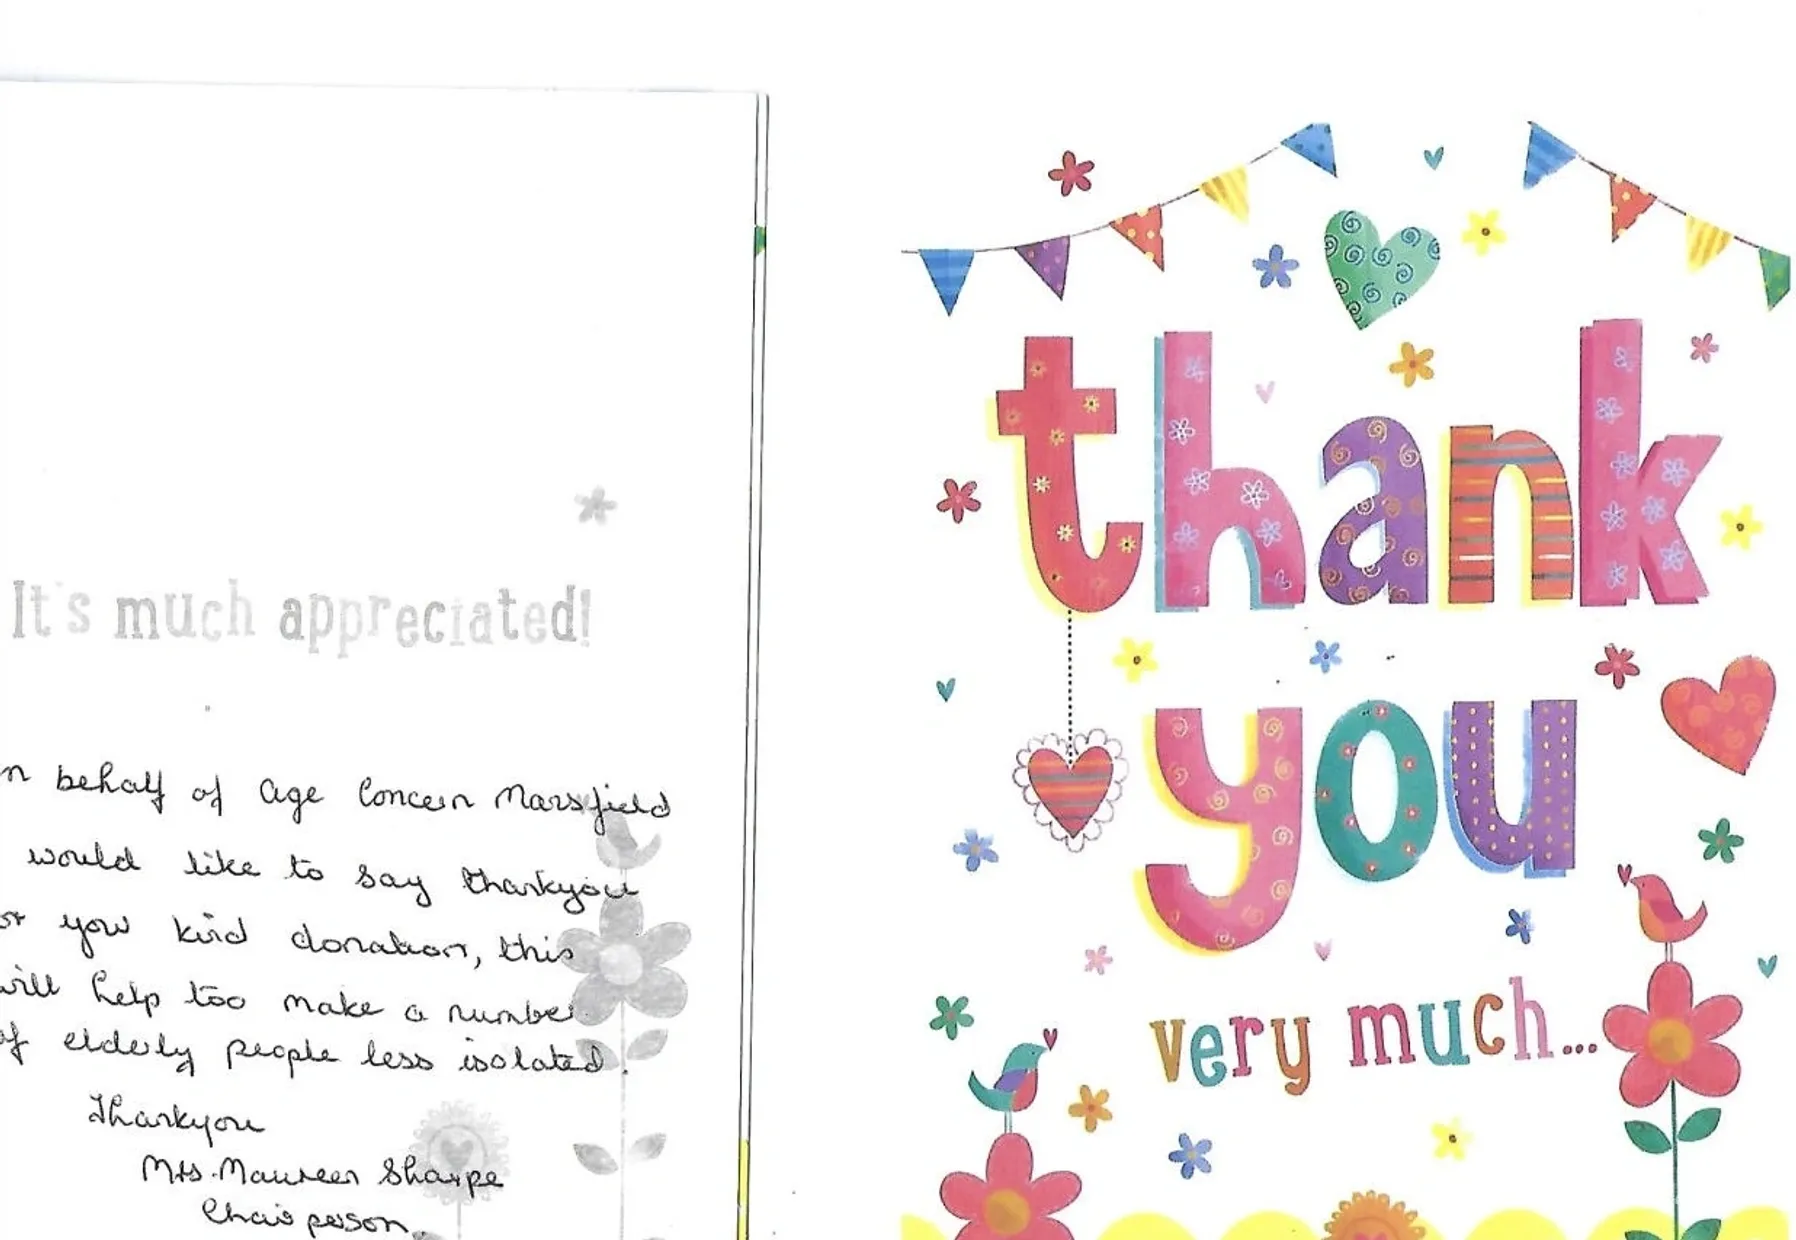 It's much appreciated!
n behalf of Age Concern Marsfield
would like to say thankyou
or you kind donation, this
will help too make a number
of elderly people less isolated.
Thankyou
Mrs. Maureen Sharpe
Chair person.
thank
you
very much...